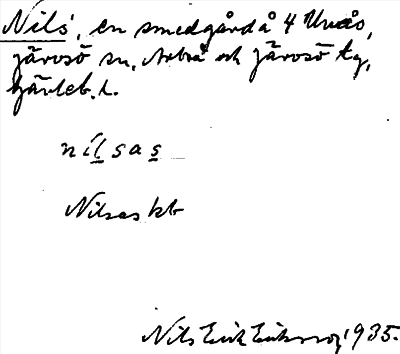 Nils', en smedgård å 4 Unås,
Järvsö sn, Arbrå och Järvsö tg,
Gävleb. l.
nilsas
Nilsas kb
Nils Erik Eriksson 1935.